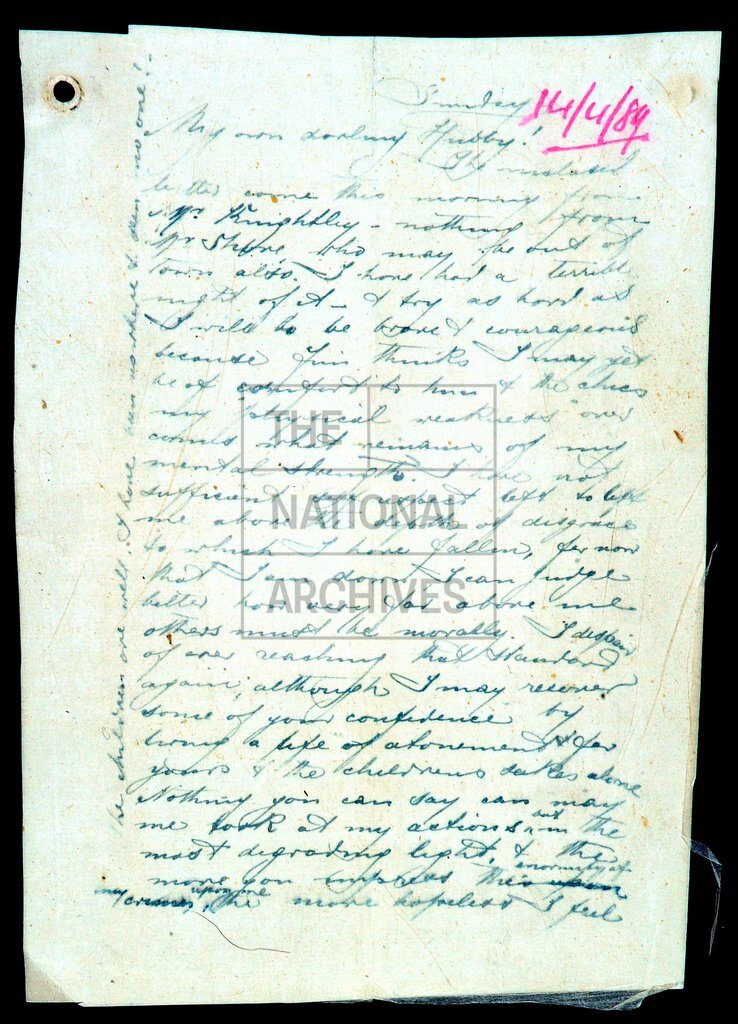 Sunday
14/4/89
My own darling Hubby!
The
letter come this morning from
Mr Knightly – nothing from
Mr Shore, who may be out of
town also. I have had a terrible
night of it – & try as hard as
I will to be brave & courageous
because Jim thinks I may yet
be of comfort to him & the chicks
my physical weakness over
comes what remains of my
mental strength. I have not
sufficient respect left to lift
me above the depth of disgrace
to which I have fallen, for now
that I am down I can judge
better how very far above me
others must be morally. I despair
of ever reaching that standard
again, although I may recover
some of your confidence by
living a life of atonement for
yours & the childrens sakes alone
Nothing you can say can may
me look at my actions but in the
most degrading light, & the
more you impress the enormity of
my crimes upon me, the more hopeless I feel
The children are well. I have been no where & seen no one!
THE
NATIONAL
ARCHIVES